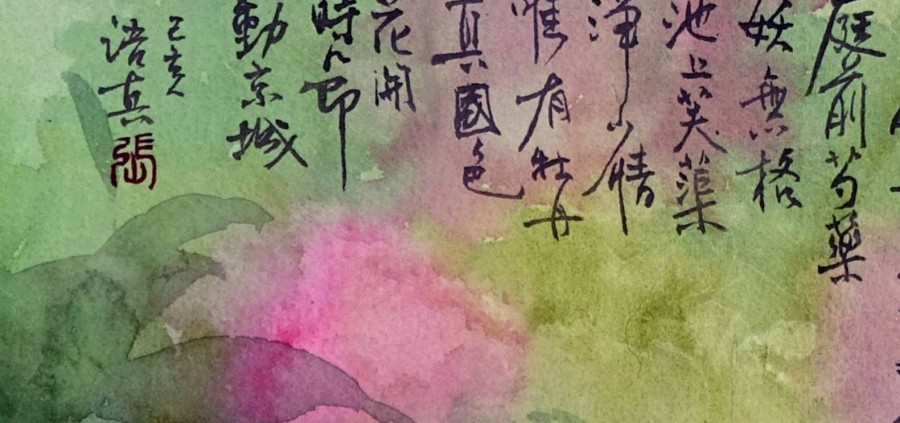 庭前芍藥
妖無格
池上芙蕖
淨少情
惟有牡丹
真國色
花開
時節
動京城
己亥
浩真
張